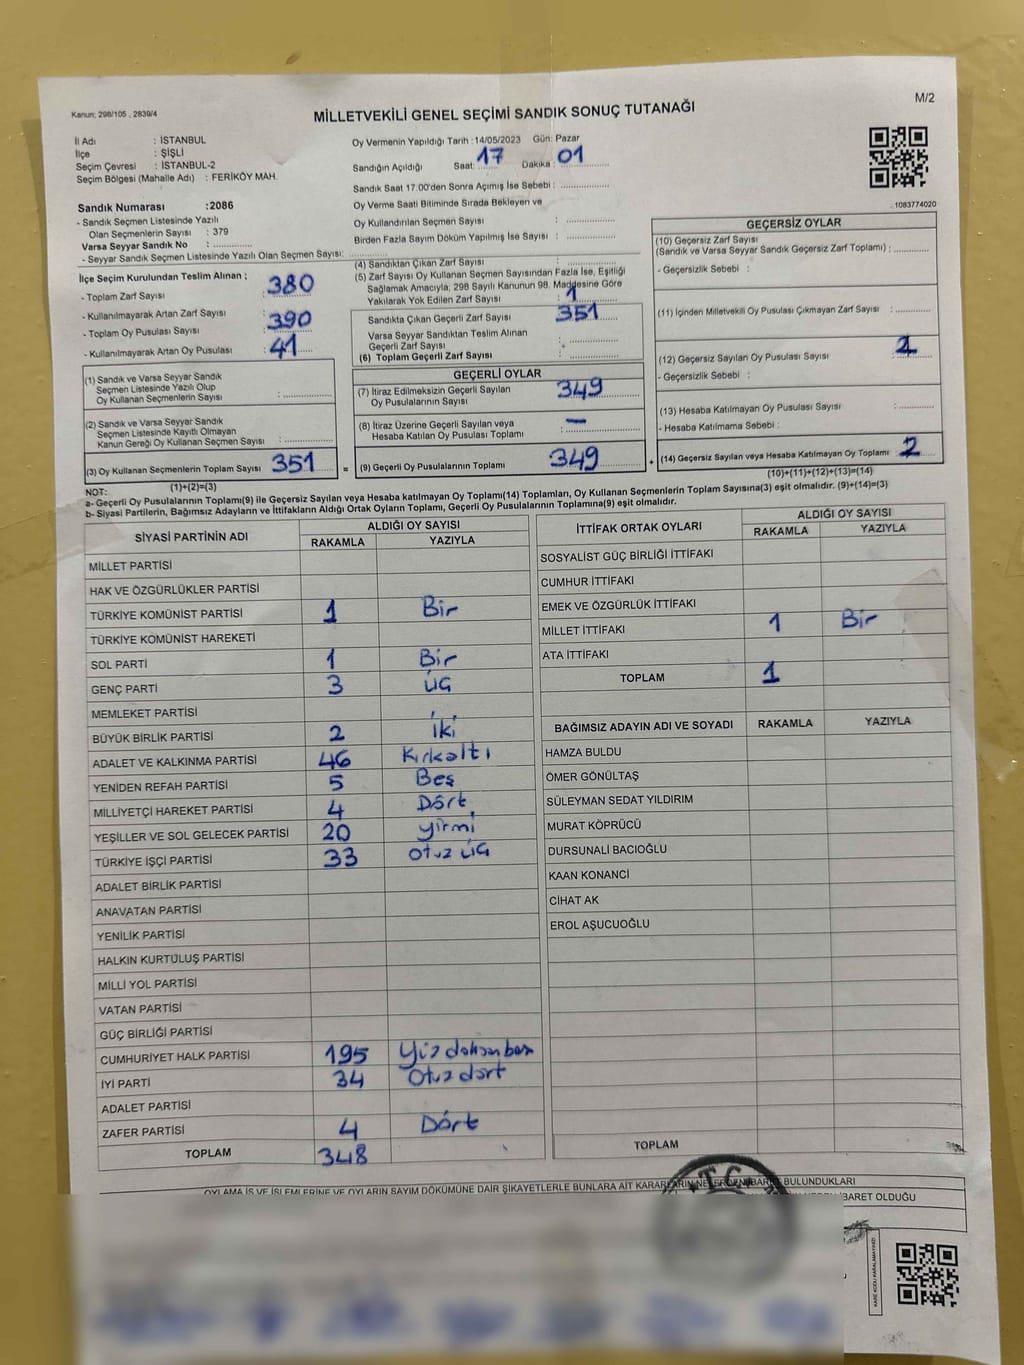 Kanun; 298/105 , 2839/4
MİLLETVEKİLİ GENEL SEÇİMİ SANDIK SONUÇ TUTANAĞI
M/2
İl Adı : İSTANBUL
İlçe : ŞİŞLİ
Seçim Çevresi : İSTANBUL-2
Seçim Bölgesi (Mahalle Adı) : FERİKÖY MAH.
Oy Vermenin Yapıldığı Tarih :14/05/2023 Gün: Pazar
Sandığın Açıldığı Saat: 17 Dakika : 01
Sandık Saat 17.00'den Sonra Açımış İse Sebebi :
Oy Verme Saati Bitiminde Sırada Bekleyen ve
Oy Kullandırılan Seçmen Sayısı :
Birden Fazla Sayım Döküm Yapılmış İse Sayısı :
1083774020
Sandık Numarası :2086
- Sandık Seçmen Listesinde Yazılı
Olan Seçmenlerin Sayısı : 379
Varsa Seyyar Sandık No :
- Seyyar Sandık Seçmen Listesinde Yazılı Olan Seçmen Sayısı:
İlçe Seçim Kurulundan Teslim Alınan ;
- Toplam Zarf Sayısı : 380
- Kullanılmayarak Artan Zarf Sayısı :
- Toplam Oy Pusulası Sayısı : 390
- Kullanılmayarak Artan Oy Pusulası : 41
(1) Sandık ve Varsa Seyyar Sandık
Seçmen Listesinde Yazılı Olup
Oy Kullanan Seçmenlerin Sayısı :
(2) Sandık ve Varsa Seyyar Sandık
Seçmen Listesinde Kayıtlı Olmayan
Kanun Gereği Oy Kullanan Seçmen Sayısı :
(3) Oy Kullanan Seçmenlerin Toplam Sayısı 351
(1)+(2)=(3)
(4) Sandıktan Çıkan Zarf Sayısı :
(5) Zarf Sayısı Oy Kullanan Seçmen Sayısından Fazla İse, Eşitliği
Sağlamak Amacıyla; 298 Sayılı Kanunun 98. Maddesine Göre
Yakılarak Yok Edilen Zarf Sayısı : 1
Sandıkta Çıkan Geçerli Zarf Sayısı : 351
Varsa Seyyar Sandıktan Teslim Alınan
Geçerli Zarf Sayısı
(6) Toplam Geçerli Zarf Sayısı :
GEÇERLİ OYLAR
(7) İtiraz Edilmeksizin Geçerli Sayılan
Oy Pusulalarının Sayısı : 349
(8) İtiraz Üzerine Geçerli Sayılan veya
Hesaba Katılan Oy Pusulaları Toplamı : —
= (9) Geçerli Oy Pusulalarının Toplamı 349 +
GEÇERSİZ OYLAR
(10) Geçersiz Zarf Sayısı
(Sandık ve Varsa Seyyar Sandık Geçersiz Zarf Toplamı) :
- Geçersizlik Sebebi :
(11) İçinden Milletvekili Oy Pusulası Çıkmayan Zarf Sayısı :
(12) Geçersiz Sayılan Oy Pusulası Sayısı : 2
- Geçersizlik Sebebi :
(13) Hesaba Katılmayan Oy Pusulası Sayısı :
- Hesaba Katılmama Sebebi :
(14) Geçersiz Sayılan veya Hesaba Katılmayan Oy Toplamı : 2
(10)+(11)+(12)+(13)=(14)
NOT:
a- Geçerli Oy Pusulalarının Toplamı(9) ile Geçersiz Sayılan veya Hesaba katılmayan Oy Toplamı(14) Toplamları, Oy Kullanan Seçmenlerin Toplam Sayısına(3) eşit olmalıdır. (9)+(14)=(3)
b- Siyasi Partilerin, Bağımsız Adayların ve İttifakların Aldığı Ortak Oyların Toplamı, Geçerli Oy Pusulalarının Toplamına(9) eşit olmalıdır.
SİYASİ PARTİNİN ADI ALDIĞI OY SAYISI
RAKAMLA YAZIYLA
MİLLET PARTİSİ
HAK VE ÖZGÜRLÜKLER PARTİSİ
TÜRKİYE KOMÜNİST PARTİSİ 1 Bir
TÜRKİYE KOMÜNİST HAREKETİ
SOL PARTİ 1 Bir
GENÇ PARTİ 3 Üç
MEMLEKET PARTİSİ
BÜYÜK BİRLİK PARTİSİ 2 İki
ADALET VE KALKINMA PARTİSİ 46 Kırkaltı
YENİDEN REFAH PARTİSİ 5 Beş
MİLLİYETÇİ HAREKET PARTİSİ 4 Dört
YEŞİLLER VE SOL GELECEK PARTİSİ 20 yirmi
TÜRKİYE İŞÇİ PARTİSİ 33 Otuz üç
ADALET BİRLİK PARTİSİ
ANAVATAN PARTİSİ
YENİLİK PARTİSİ
HALKIN KURTULUŞ PARTİSİ
MİLLİ YOL PARTİSİ
VATAN PARTİSİ
GÜÇ BİRLİĞİ PARTİSİ
CUMHURİYET HALK PARTİSİ 195 Yüz doksan beş
İYİ PARTİ 34 Otuz dört
ADALET PARTİSİ
ZAFER PARTİSİ 4 Dört
TOPLAM 348
İTTİFAK ORTAK OYLARI ALDIĞI OY SAYISI
RAKAMLA YAZIYLA
SOSYALİST GÜÇ BİRLİĞİ İTTİFAKI
CUMHUR İTTİFAKI
EMEK VE ÖZGÜRLÜK İTTİFAKI
MİLLET İTTİFAKI 1 Bir
ATA İTTİFAKI
TOPLAM 1
BAĞIMSIZ ADAYIN ADI VE SOYADI RAKAMLA YAZIYLA
HAMZA BULDU
ÖMER GÖNÜLTAŞ
SÜLEYMAN SEDAT YILDIRIM
MURAT KÖPRÜCÜ
DURSUNALİ BACIOĞLU
KAAN KONANCİ
CİHAT AK
EROL AŞUCUOĞLU
TOPLAM
OYLAMA İŞ VE İŞLEMLERİNE VE OYLARIN SAYIM DÖKÜMÜNE DAİR ŞİKAYETLERLE BUNLARA AİT KARARLARIN NELERDEN İBARET BULUNDUKLARI
İBARET OLDUĞU
T.C.